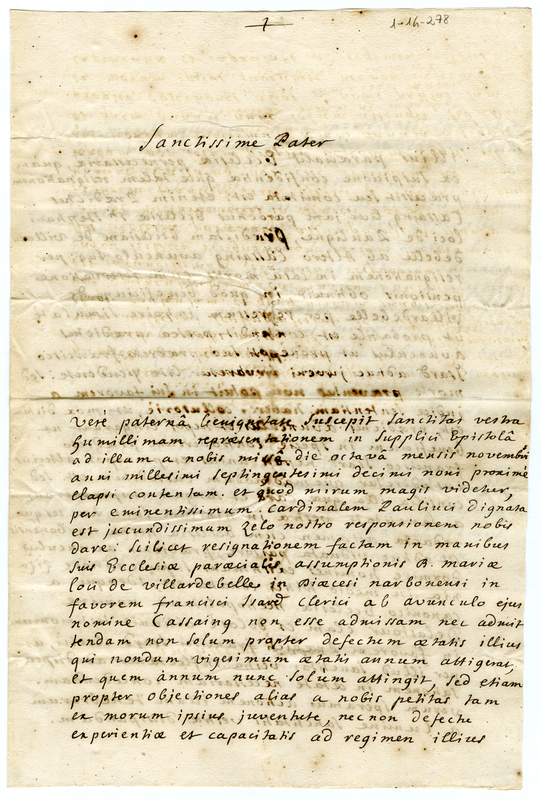 1
1-14-278
Sanctissime Pater
Veré paternâ benignitate suscepit Sanctitas vestra
humillimam repræsentationem in supplici Epistolâ
ad illam a nobis missâ die octavâ mensis novembris
anni millesimi septingentesimi decimi noni proximè
elapsi contentam. et quod mirum magis videtur,
per eminentissimum. Cardinalem Pauliuci dignata
est jucundissimum zelo nostro responsionem nobis
dare: scilicet resignationem factam in manibus
suis Ecclesiæ paræcialis, assumptionis B. mariæ
loci de villardebelle in Diæcesi narbonensi in
favorem francisci Isard clerici ab avunculo ejus
nomine Cassaing non esse admissam nec admit
tendam non solum propter defectum ætatis illius
qui nondum vigesimum ætatis annum attigerat,
et quem ànnum nunc solùm attingit, sed etiam
propter objectiones alias a nobis petitas tam
ex morum ipsius juventute, nec non defectu
experientiæ et capacitatis ad regimen illius